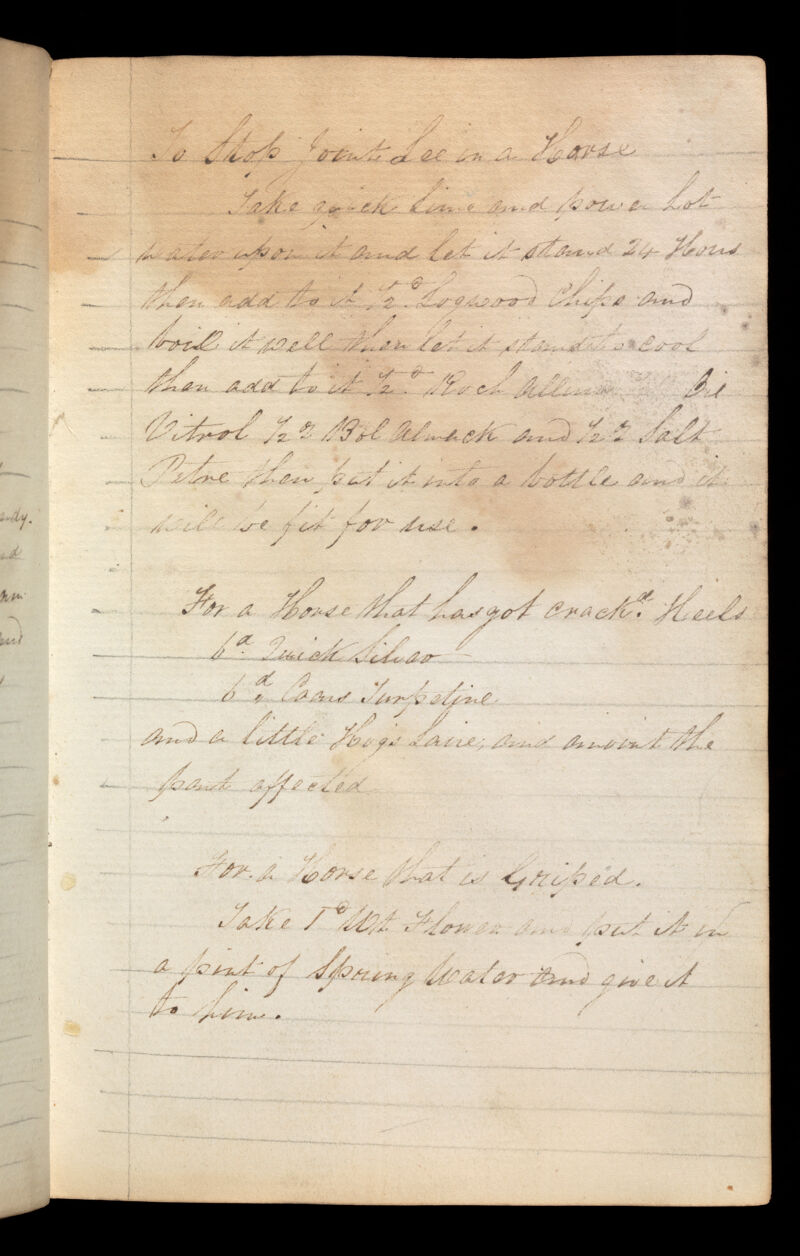 To Stop Joint Lee in a Horse
Take quick Lime and power hot
water upon it and let it stand 24 Hours
then add to it ½ᵈ. Logwood Chips and
boil it well then let it stand to cool
then add to it ½ᵈ Roch Allum Oil
Vitrol ½ ℥ Bol and ½ ℥ Salt
Petre then put it into a bottle and it
will be fit for use.
For a Horse that has got crackᵈ. Heels
6ᵈ. Quick Silver
6ᵈ. Coars Turpetine
and a little Hogs and anoint the
part affected
For a Horse that is Griped.
Take 1ᵈ Wt. Flower and put it in
a pint of Spring Water and give it
to him.
ndy.
nd
am
and